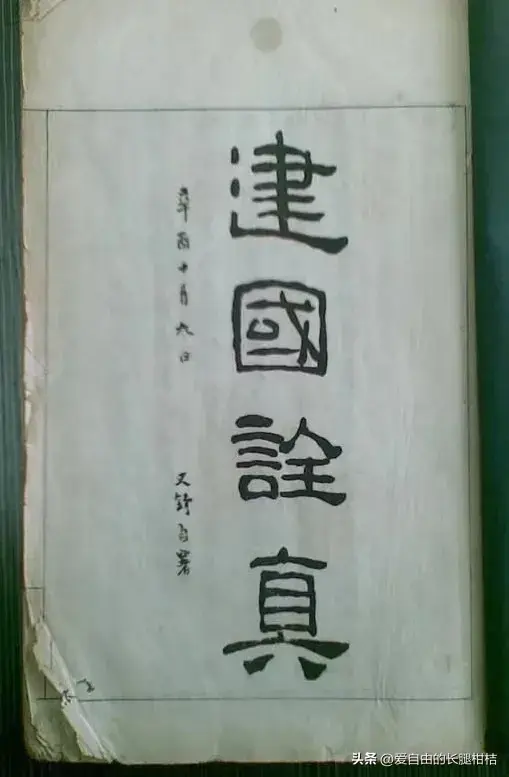 建國詮真
辛酉十月九日
又錚自署
头条 @爱自由的长腿柑桔